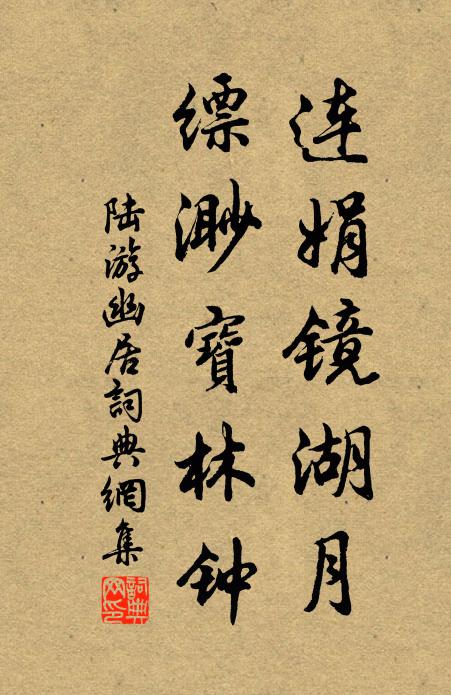 连娟镜湖月
缥渺寶林钟
陆游幽居詞典網集
詞典網印